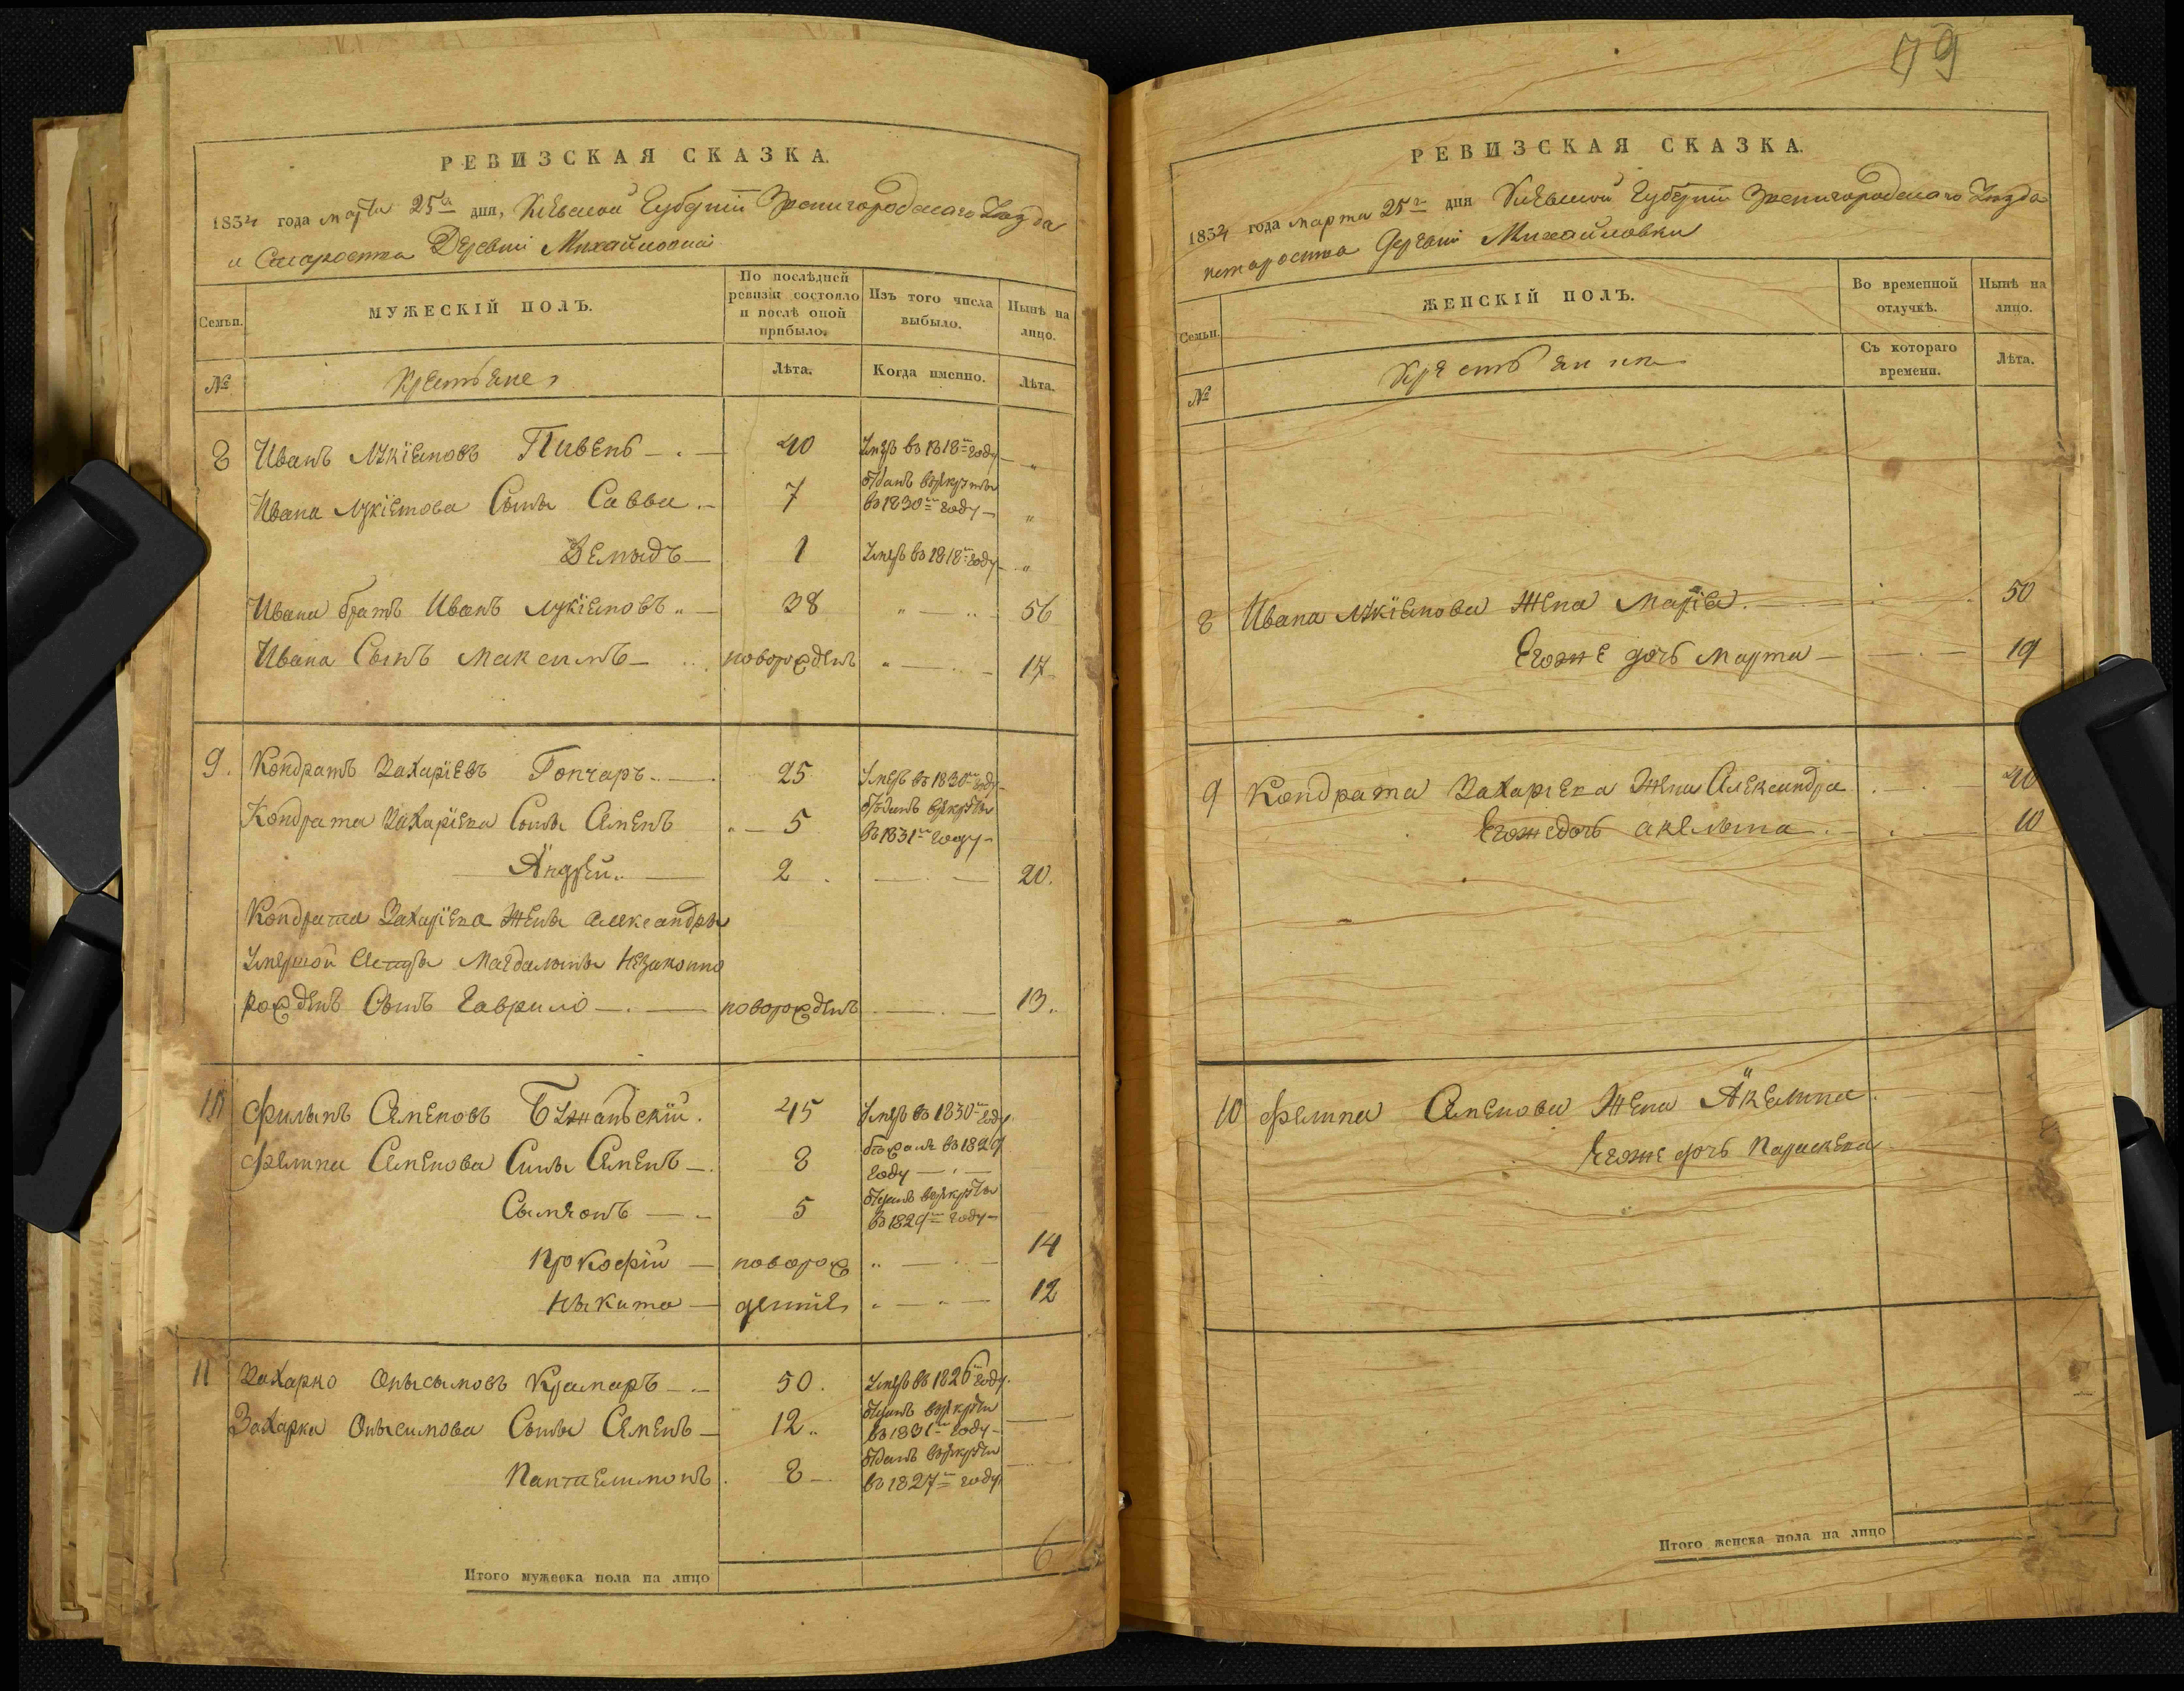 79
РЕВИЗСКАЯ СКАЗКА.
1834 года марта 25го дня, Кіевской Губерніи Звенигородскаго Уезда
Староства Деревни Михайловки
Семьи.
МУЖЕСКІЙ ПОЛЪ.
По послѣдней ревизіи состояло и послѣ оной прибыло.
Изъ того числа выбыло.
Нынѣ на лицо.
№
Крестьяне
Лѣта.
Когда именно.
Лѣта.
8 Иванъ Лукіяновъ Пивень 40 Умеръ въ 1818м году "
Ивана Лукіянова Сыны Савва 7 отданъ въ рекруты въ 1830м году "
Демыдъ 1 Умеръ въ 1818м году "
Ивана братъ Иванъ Лукіяновъ 38 " 56
Ивана Сынъ Максимъ новорожденъ " 17
9. Кондратъ Захаріевъ Гончаръ 25 Умеръ въ 1830м году
Кондрата Захаріева Сыны Семенъ 5 отданъ в рекруты въ 1831м году
Андрей 2 20.
Кондрата Захаріева Жены Александры
Умершой Сестры Магдалыны Незаконно
рожденъ Сынъ Гаврило новорожденъ 13.
10 Филыпъ Семеновъ Бужаньскій. 45 Умеръ въ 1830м году
Филипа Семенова Сыны Семенъ 8 бежалъ въ 1829 году
Сымеонъ 5 отданъ в рекруты въ 1829м году
Прокофій новорож " 14
Ныкита денніе " 12
11 Захарко Онысымовъ Крамаръ 50. Умеръ въ 1826м году.
Захарка Онысимова Сыны Семенъ 12 отданъ в рекруты въ 1831м году
Пантелимонъ 8 отданъ в рекруты въ 1827м году
Итого мужеска пола на лицо 6
РЕВИЗСКАЯ СКАЗКА.
1834 года марта 25го дня Кіевской Губерніи Звенигородскаго Уезда
староства Деревни Михайловки
Семьи.
ЖЕНСКІЙ ПОЛЪ.
Во временной отлучкѣ.
Нынѣ на лицо.
№
Съ котораго времени.
Лѣта.
8 Ивана Лукіянова Жена Марія 50
Егоже дочь Марта 19
9 Кондрата Захаріева Жена Александра 40
Егоже дочь Акелына 10
10 Филипа Семенова Жена Акелина
Егоже дочь Параскева
Итого женска пола на лицо